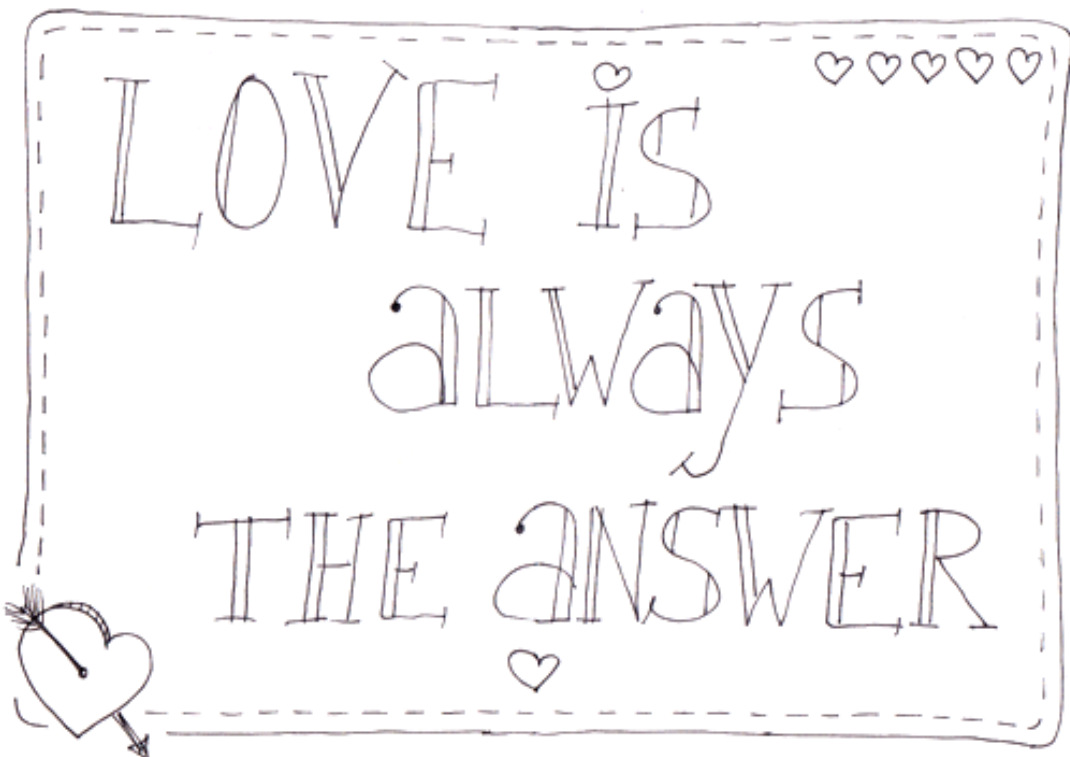 LOVE is
aLWayS
THE aNSWER